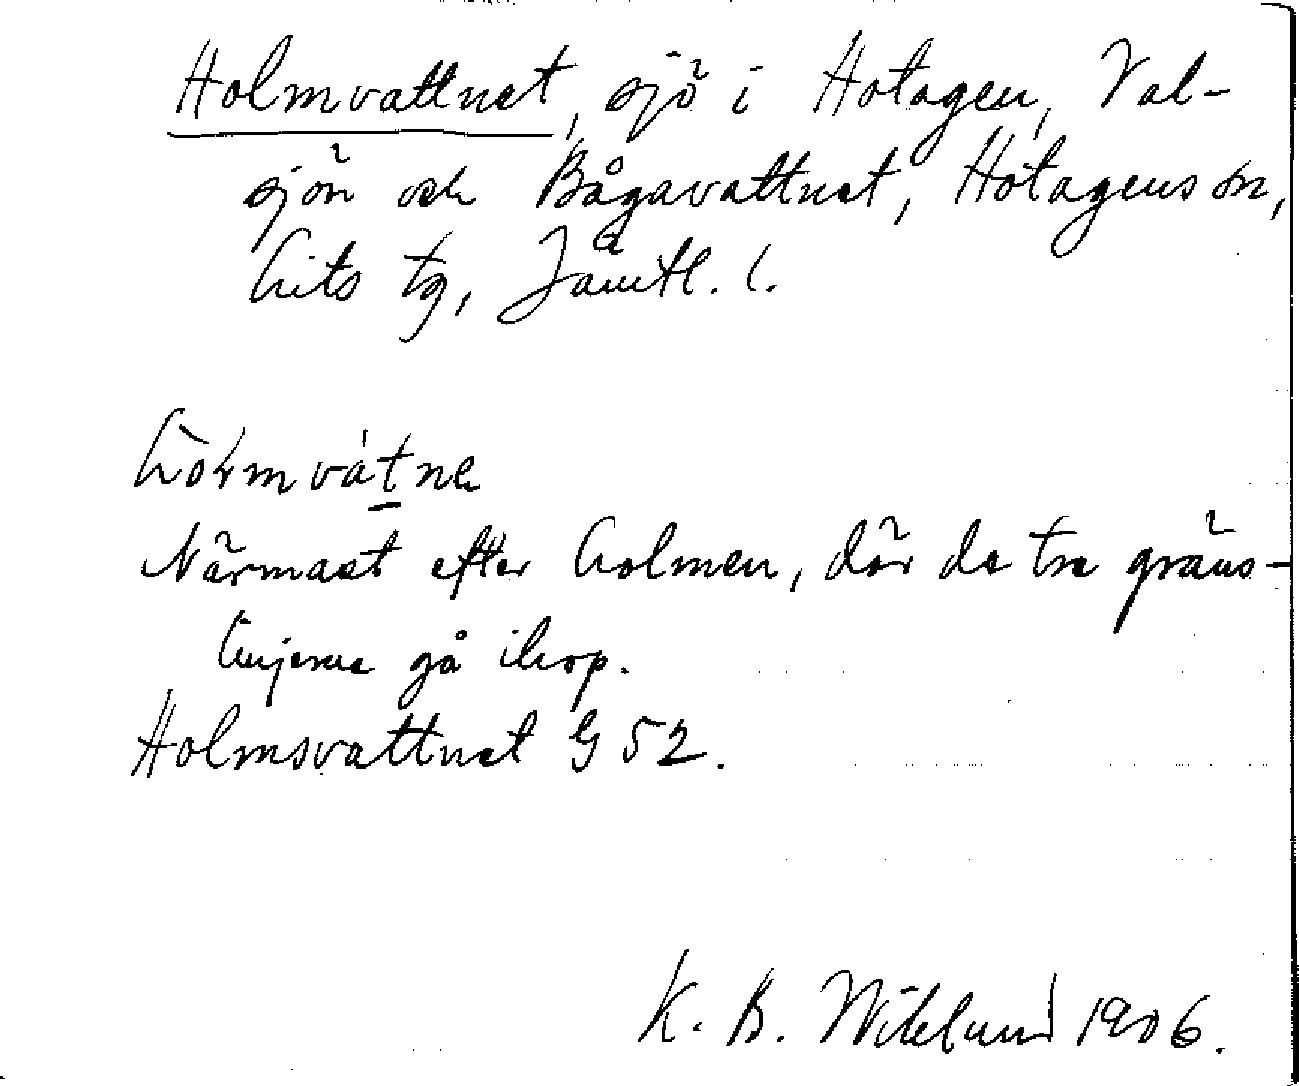 Holmvattnet, sjö i Hotagen, Val-
sjön och Bågavattnet, Hotagens sn,
Lits tg, Jämtl. l.
Närmast efter holmen, där de tre gräns-
linjerna gå ihop.
Holmsvattnet G 52.
K. B. Wiklund 1906.